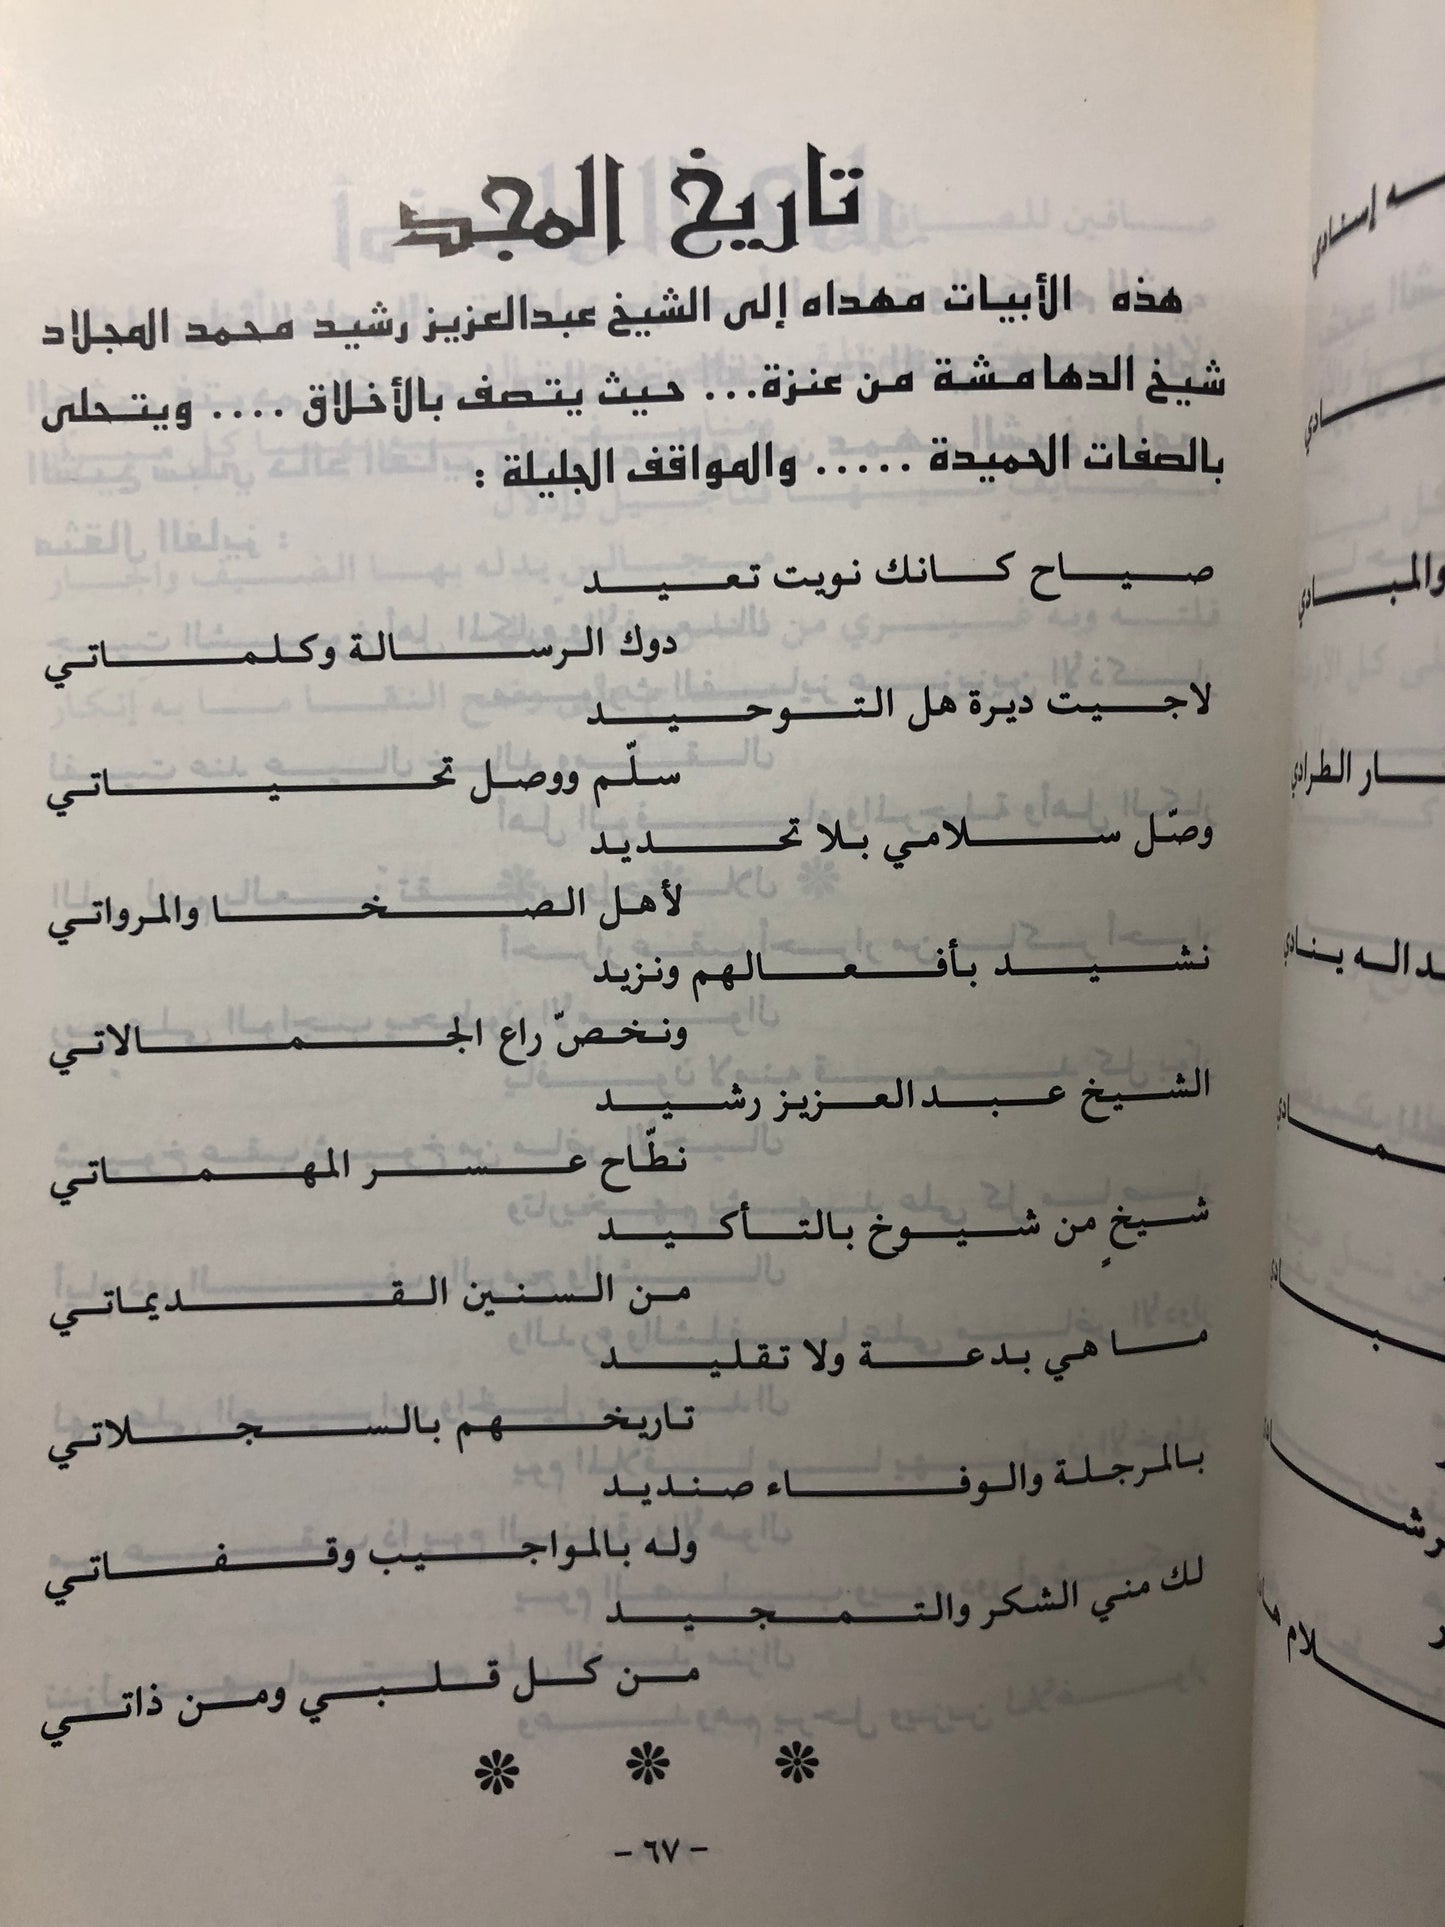 تاريخ المجد
هذه الأبيات مهداه إلى الشيخ عبدالعزيز رشيد محمد المجلاد
شيخ الدهامشة من عنزة... حيث يتصف بالأخلاق .... ويتحلى
بالصفات الحميدة ..... والمواقف الجليلة :
صياح كانك نويت تعيد
دوك الرسالة وكلماتي
لاجيت ديرة هل التوحيد
سلّم ووصل تحياتي
وصّل سلامي بلا تحديد
لأهل الصخا والمرواتي
نشيد بأفعالهم ونزيد
ونخصّ راع الجمالاتي
الشيخ عبدالعزيز رشيد
نطّاح عسر المهماتي
شيخٍ من شيوخ بالتأكيد
من السنين القديماتي
ما هي بدعة ولا تقليد
تاريخهم بالسجلاتي
بالمرجلة والوفاء صنديد
وله بالمواجيب وقفاتي
لك مني الشكر والتمجيد
من كل قلبي ومن ذاتي
- ٦٧ -
إسنادي
والمبادي
الطرادي
ينادي